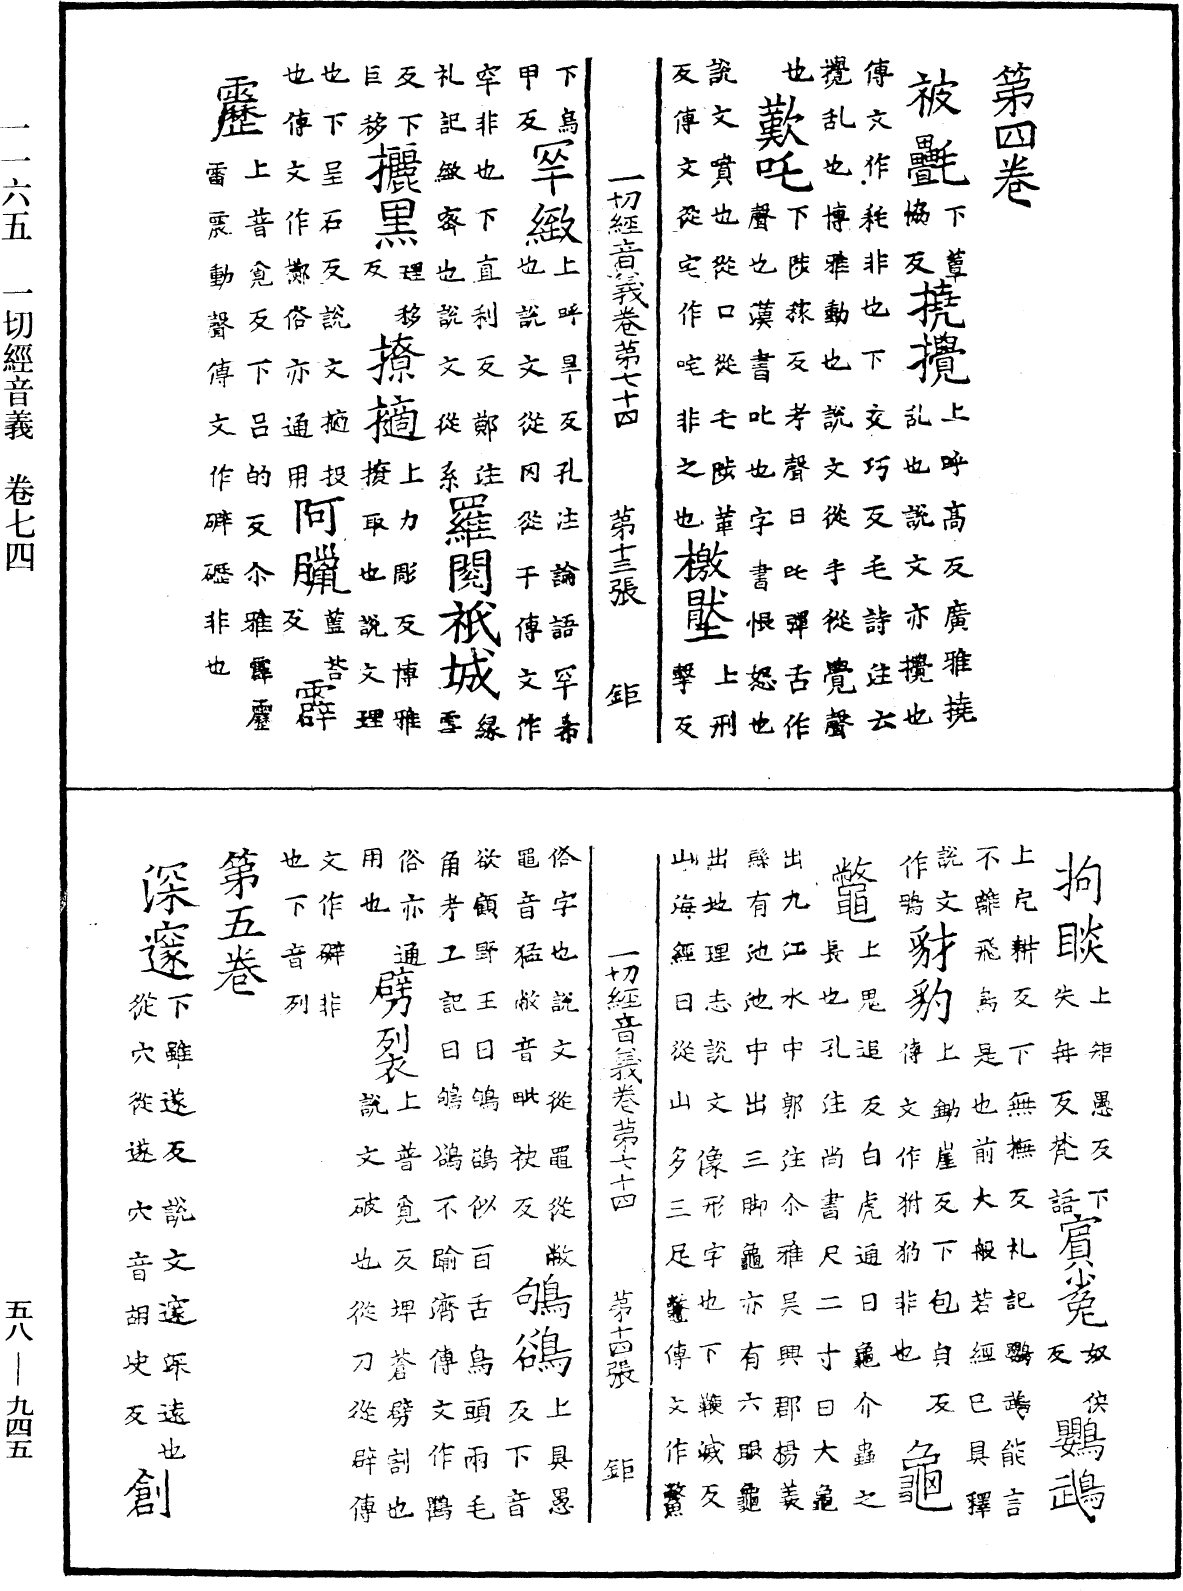 一一六五　一切經音義　卷七四
第四卷
被氎下葶協反撓攪上呼高反廣雅撓
亂也說文亦攪也
傳文作毦非也下交巧反毛詩注云
攪乱也博雅動也說文從手從覺聲
也歎吒下陟嫁反考聲曰吒彈舌作
聲也漢書叱也字書恨怒也
說文噴也從口從乇陟革檄壍上刑
反傳文從宅作咤非之也擊反
一切經音義卷第七十四　第十三張　鉅
下烏罕緻上呼旱反孔注論語罕希
甲反也說文從网從干傳文作
罕非也下直利反鄭注羅閱祇城緣
礼記緻密也說文從糸雪
反下攦黑理移撩擿上力彫反博雅
巨移反撩取也說文理
也下呈石反說文擿投阿臘藍荅
也傳文作擲俗亦通用反霹
靂上普覓反下呂的反尒雅霹靂
雷震動聲傳文作礔礰非也
拘睒上矩愚反下賓㝹奴侯鸚䳇
失冉反梵語反
上戹耕反下無撫反礼記鸚䳇能言
不離飛鳥是也前大般若經已具釋
說文豺豹上鋤崖反下包皃反龜
作鴞傳文作犲犳非也
鼈上鬼追反白虎通曰龜介蟲之
長也孔注尚書尺二寸曰大龜
出九江水中郭注尒雅吴興郡楊羡
縣有池池中出三脚龜亦有六眼龜
出地理志說文像形字也下鞭滅反
山海經曰從山多三足鼈傳文作鱉
一切經音義卷第七十四　第十四張　鉅
俗字也說文從黽從敝鴝鵒上具愚
黽音猛敝音毗袂反反下音
欲顧野王曰鴝鵒似百舌鳥頭兩毛
角考工記曰鴝鵒不踰濟傳文作鸜
俗亦通劈列裂上普覓反埤蒼劈割也
用也說文破也從刀從辟傳
文作礔非
也下音列
第五卷
深邃下雖遂反說文邃深遠也創
從穴從遂穴音胡决反
五八—九四五